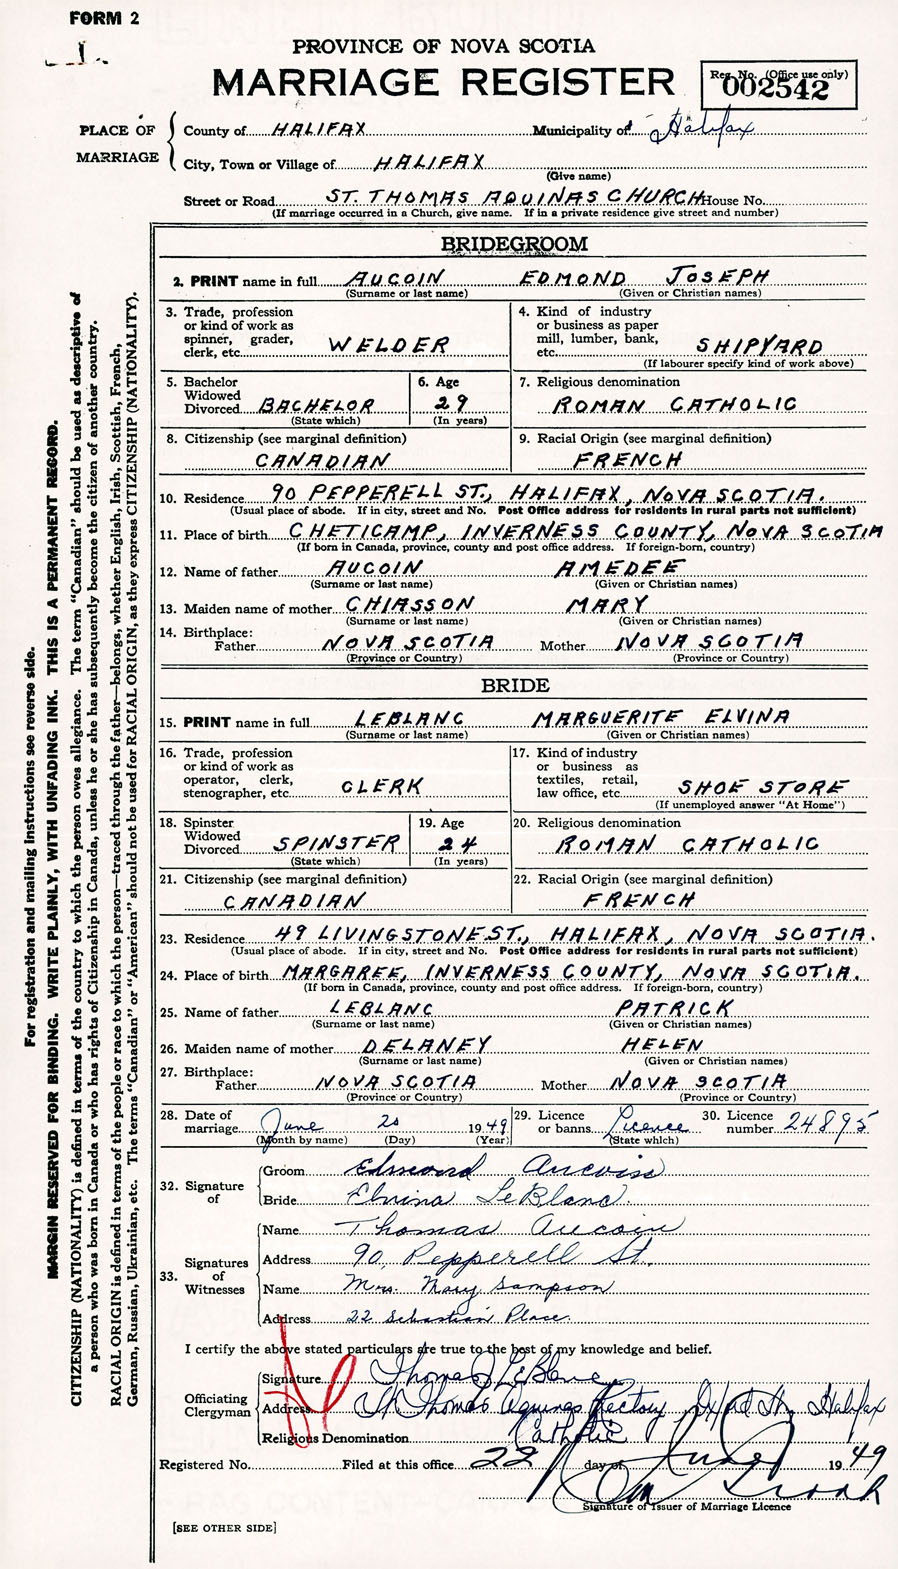 FORM 2
PROVINCE OF NOVA SCOTIA
MARRIAGE REGISTER
Reg. No. (Office use only)
002542
PLACE OF MARRIAGE
County of HALIFAX Municipality of Halifax
City, Town or Village of HALIFAX
(Give name)
Street or Road ST. THOMAS AQUINAS CHURCH House No.
(If marriage occurred in a Church, give name. If in a private residence give street and number)
BRIDEGROOM
2. PRINT name in full AUCOIN EDMOND JOSEPH
(Surname or last name) (Given or Christian names)
3. Trade, profession or kind of work as spinner, grader, clerk, etc. WELDER
4. Kind of industry or business as paper mill, lumber, bank, etc. SHIPYARD
(If labourer specify kind of work above)
5. Bachelor Widowed Divorced BACHELOR
(State which)
6. Age 29
(In years)
7. Religious denomination
ROMAN CATHOLIC
8. Citizenship (see marginal definition)
CANADIAN
9. Racial Origin (see marginal definition)
FRENCH
10. Residence 90 PEPPERELL ST., HALIFAX, NOVA SCOTIA.
(Usual place of abode. If in city, street and No. Post Office address for residents in rural parts not sufficient)
11. Place of birth CHETICAMP, INVERNESS COUNTY, NOVA SCOTIA
(If born in Canada, province, county and post office address. If foreign-born, country)
12. Name of father AUCOIN AMEDEE
(Surname or last name) (Given or Christian names)
13. Maiden name of mother CHIASSON MARY
(Surname or last name) (Given or Christian names)
14. Birthplace:
Father NOVA SCOTIA Mother NOVA SCOTIA
(Province or Country) (Province or Country)
BRIDE
15. PRINT name in full LEBLANC MARGUERITE ELVINA
(Surname or last name) (Given or Christian names)
16. Trade, profession or kind of work as operator, clerk, stenographer, etc. CLERK
17. Kind of industry or business as textiles, retail, law office, etc. SHOE STORE
(If unemployed answer "At Home")
18. Spinster Widowed Divorced SPINSTER
(State which)
19. Age 24
(In years)
20. Religious denomination
ROMAN CATHOLIC
21. Citizenship (see marginal definition)
CANADIAN
22. Racial Origin (see marginal definition)
FRENCH
23. Residence 49 LIVINGSTONE ST., HALIFAX, NOVA SCOTIA.
(Usual place of abode. If in city, street and No. Post Office address for residents in rural parts not sufficient)
24. Place of birth MARGAREE, INVERNESS COUNTY, NOVA SCOTIA.
(If born in Canada, province, county and post office address. If foreign-born, country)
25. Name of father LEBLANC PATRICK
(Surname or last name) (Given or Christian names)
26. Maiden name of mother DELANEY HELEN
(Surname or last name) (Given or Christian names)
27. Birthplace:
Father NOVA SCOTIA Mother NOVA SCOTIA
(Province or Country) (Province or Country)
28. Date of marriage June 20 1949
(Month by name) (Day) (Year)
29. Licence or banns Licence
(State which)
30. Licence number 24895
32. Signature of
Groom Edmond Aucoin
Bride Elvina LeBlanc.
33. Signatures of Witnesses
Name Thomas Aucoin
Address 90, Pepperell St.
Name Mrs. Mary Sampson
Address 22 Sebastian Place.
I certify the above stated particulars are true to the best of my knowledge and belief.
Officiating Clergyman
Signature Thomas J LeBlanc
Address St Thomas Aquinas Rectory, St., Halifax
Religious Denomination Catholic
Registered No. Filed at this office 22 day of June 1949
Signature of Issuer of Marriage Licence
[SEE OTHER SIDE]
For registration and mailing instructions see reverse side.
MARGIN RESERVED FOR BINDING. WRITE PLAINLY, WITH UNFADING INK. THIS IS A PERMANENT RECORD.
CITIZENSHIP (NATIONALITY) is defined in terms of the country to which the person owes allegiance. The term "Canadian" should be used as descriptive of
a person who was born in Canada or who has rights of Citizenship in Canada, unless he or she has subsequently become the citizen of another country.
RACIAL ORIGIN is defined in terms of the people or race to which the person—traced through the father—belongs, whether English, Irish, Scottish, French,
German, Russian, Ukrainian, etc. The terms "Canadian" or "American" should not be used for RACIAL ORIGIN, as they express CITIZENSHIP (NATIONALITY).